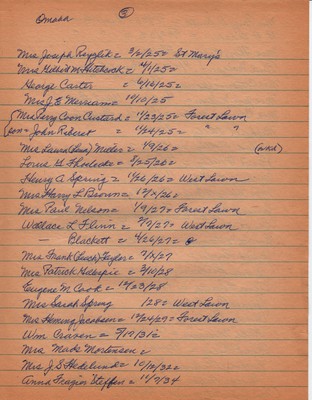 Omaha ⑤
Mrs Joseph = 3/6/25= St Mary's
Mrs Gilbert M. Hitchcock = 4/1/25=
George Carter = 6/16/25=
Mrs J.E. Merriam = 11/10/25
Mrs Percy Coon Custard = 1/23/25= Forest Lawn
son = John Robert = 1/24/25= " "
Mrs Laura () Miller = 1/9/26= (and)
Louie H = 2/25/26=
Henry A. Spring = 1/26/26= West Lawn
Mrs Harry L Brown = /26=
Mrs Paul Nelson = 1/9/27= Forest Lawn
Wallace L Flinn = /9/27= West Lawn
— Blackett = 4/26/27=
Mrs Frank () Taylor = /27
Mrs Patrick Gillespie = 3/10/28
Eugene N. Cook = 10/23/28
Mrs Sarah Spring 128= West Lawn
Mrs Jacobsen = 10/24/29= Forest Lawn
Wm Craven = 5/19/31=
Mrs Mads Mortensen =
Mrs J.S. Hedelund = 10/18/32=
Anna Frazier Steffen = 11/7/34